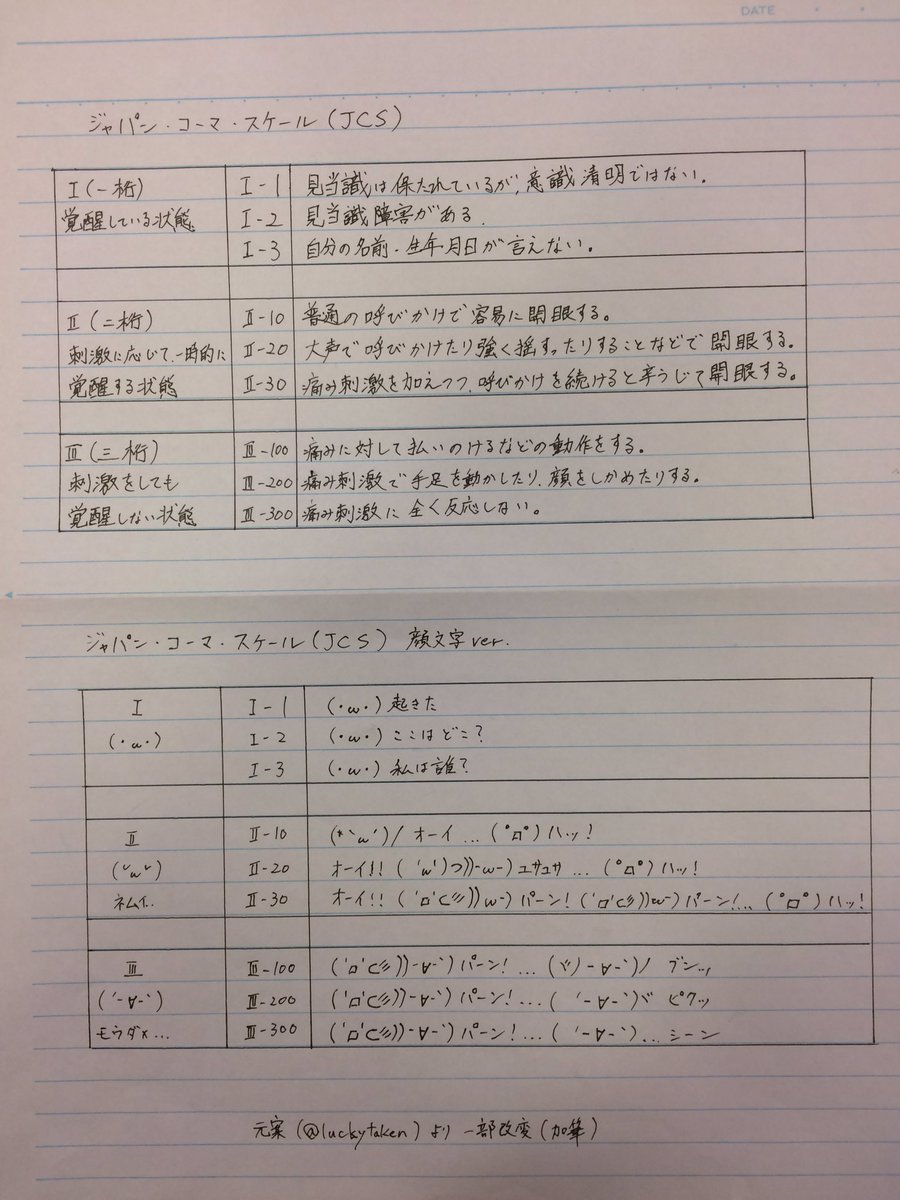 DATE
ジャパン・コーマ・スケール(JCS)
Ⅰ(一桁) Ⅰ-1 見当識は保たれているが、意識清明ではない。
覚醒している状態 Ⅰ-2 見当識障害がある.
Ⅰ-3 自分の名前・生年月日が言えない。
Ⅱ(二桁) Ⅱ-10 普通の呼びかけで容易に開眼する。
刺激に応じて、一時的に Ⅱ-20 大声で呼びかけたり強く揺すったりすることなどで開眼する。
覚醒する状態 Ⅱ-30 痛み刺激を加えつつ、呼びかけを続けると辛うじて開眼する。
Ⅲ(三桁) Ⅲ-100 痛みに対して払いのけるなどの動作をする。
刺激をしても Ⅲ-200 痛み刺激で手足を動かしたり、顔をしかめたりする。
覚醒しない状態 Ⅲ-300 痛み刺激に全く反応しない。
ジャパン・コーマ・スケール(JCS) 顔文字ver.
Ⅰ Ⅰ-1 (・ω・)起きた
(・ω・) Ⅰ-2 (・ω・)ここはどこ?
Ⅰ-3 (・ω・)私は誰?
Ⅱ Ⅱ-10 (*`ω´)/ オーイ...(゚ロ゚)ハッ!
(˘ω˘) Ⅱ-20 オーイ!!('ω')つ))-ω-)ユサユサ...(゚ロ゚)ハッ!
ネムイ.. Ⅱ-30 オーイ!!('ロ'⊂彡))ω-)パーン!('ロ'⊂彡))ω-)パーン!...(゚ロ゚)ハッ!
Ⅲ Ⅲ-100 ('ロ'⊂彡))-∀-`)パーン!...(ヾノ-∀-`)ノ ブンッ
('-∀-`) Ⅲ-200 ('ロ'⊂彡))-∀-`)パーン!...( '-∀-`)ヾ ピクッ
モウダメ... Ⅲ-300 ('ロ'⊂彡))-∀-`)パーン!...( '-∀-`)...シーン
元案(@luckytaken)より一部改変(加筆)